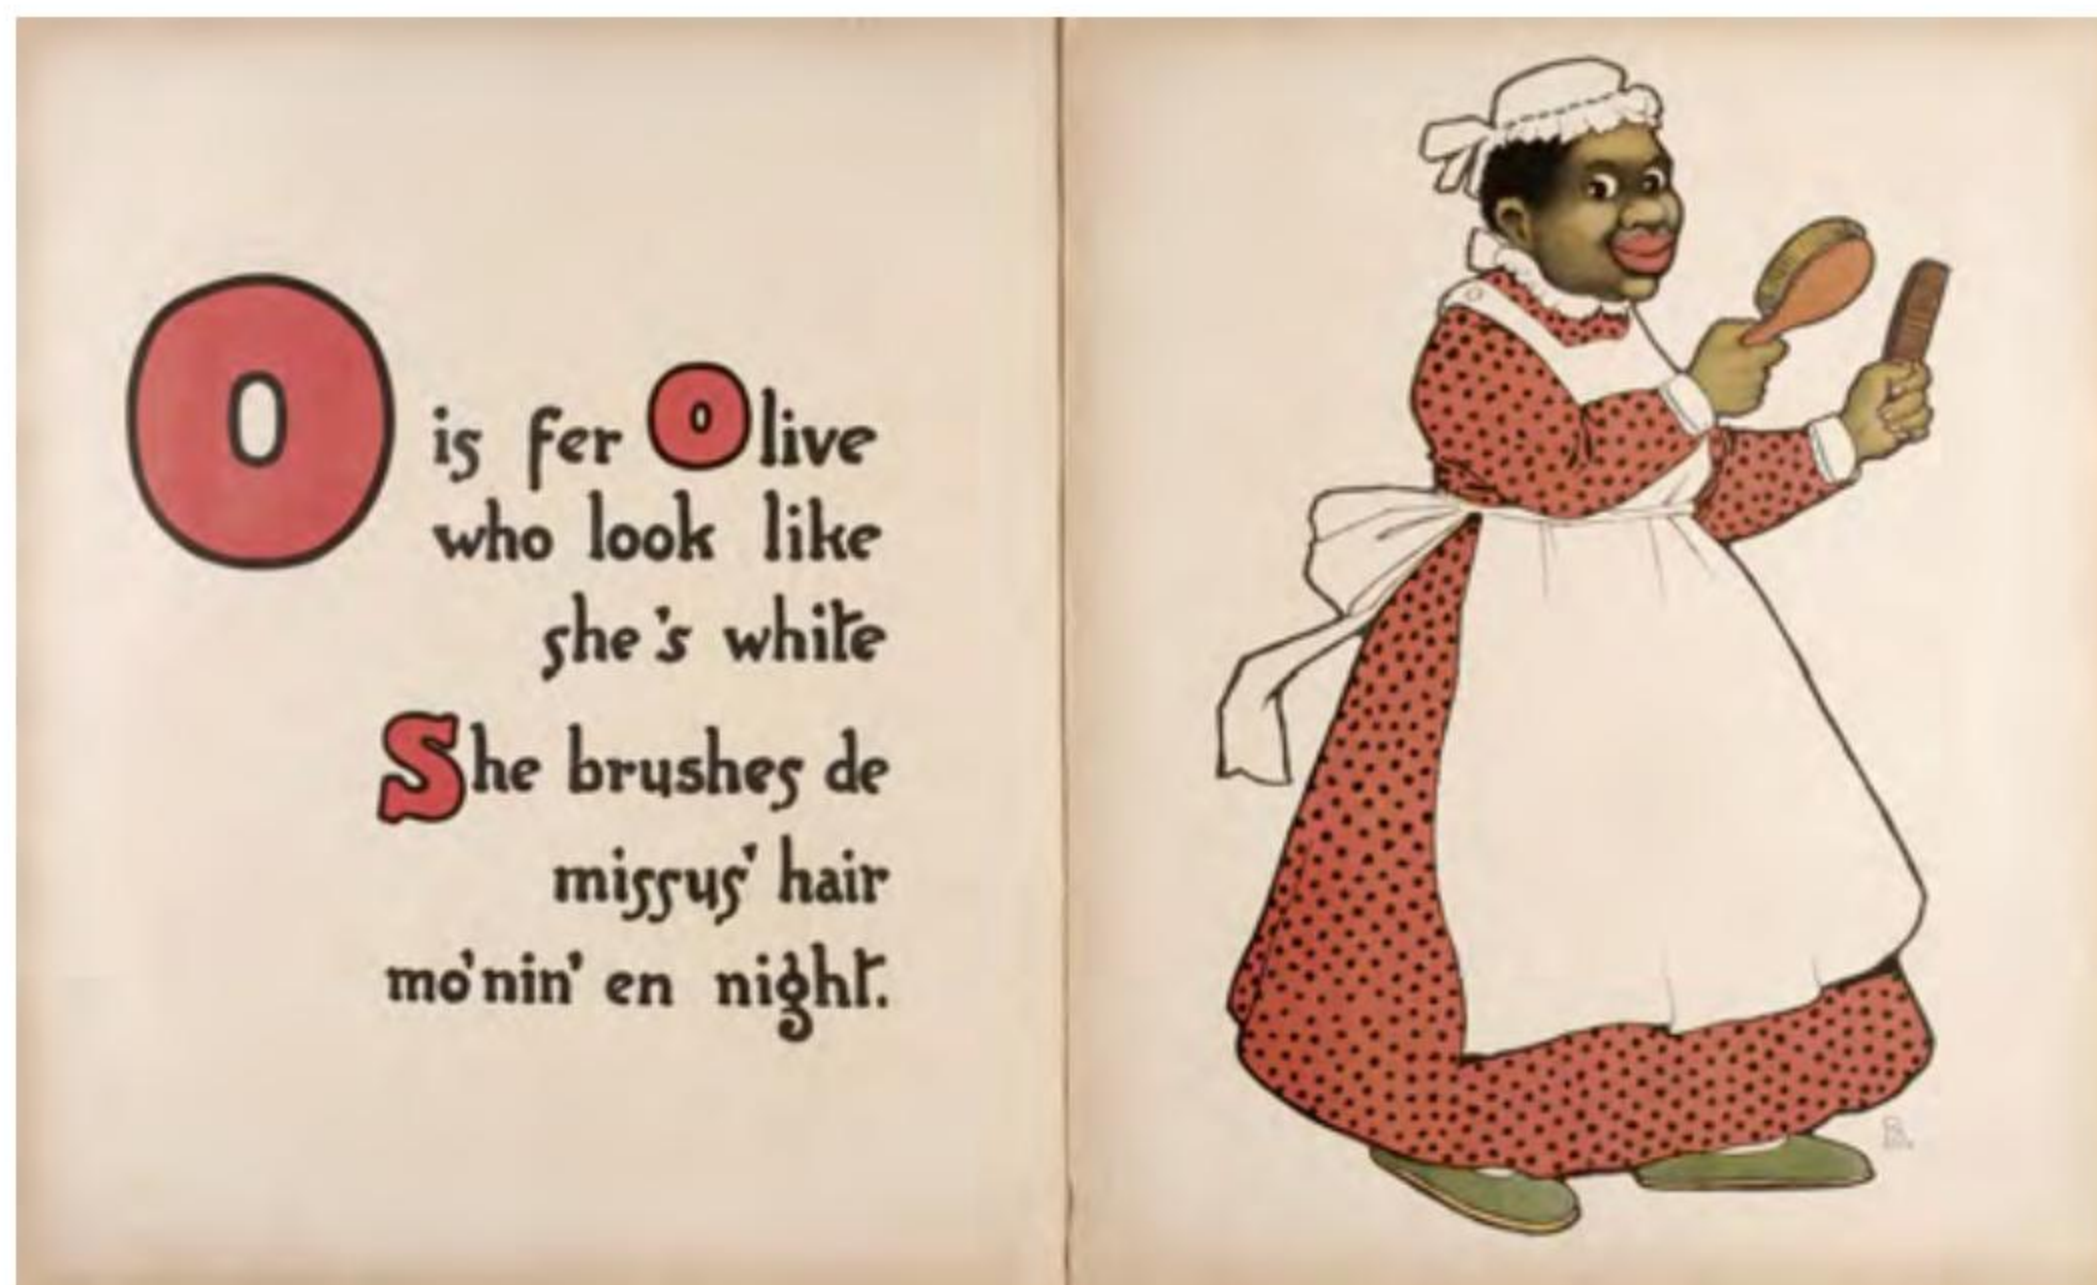 O is fer Olive
who look like
she's white
She brushes de
missus' hair
mo'nin' en night.